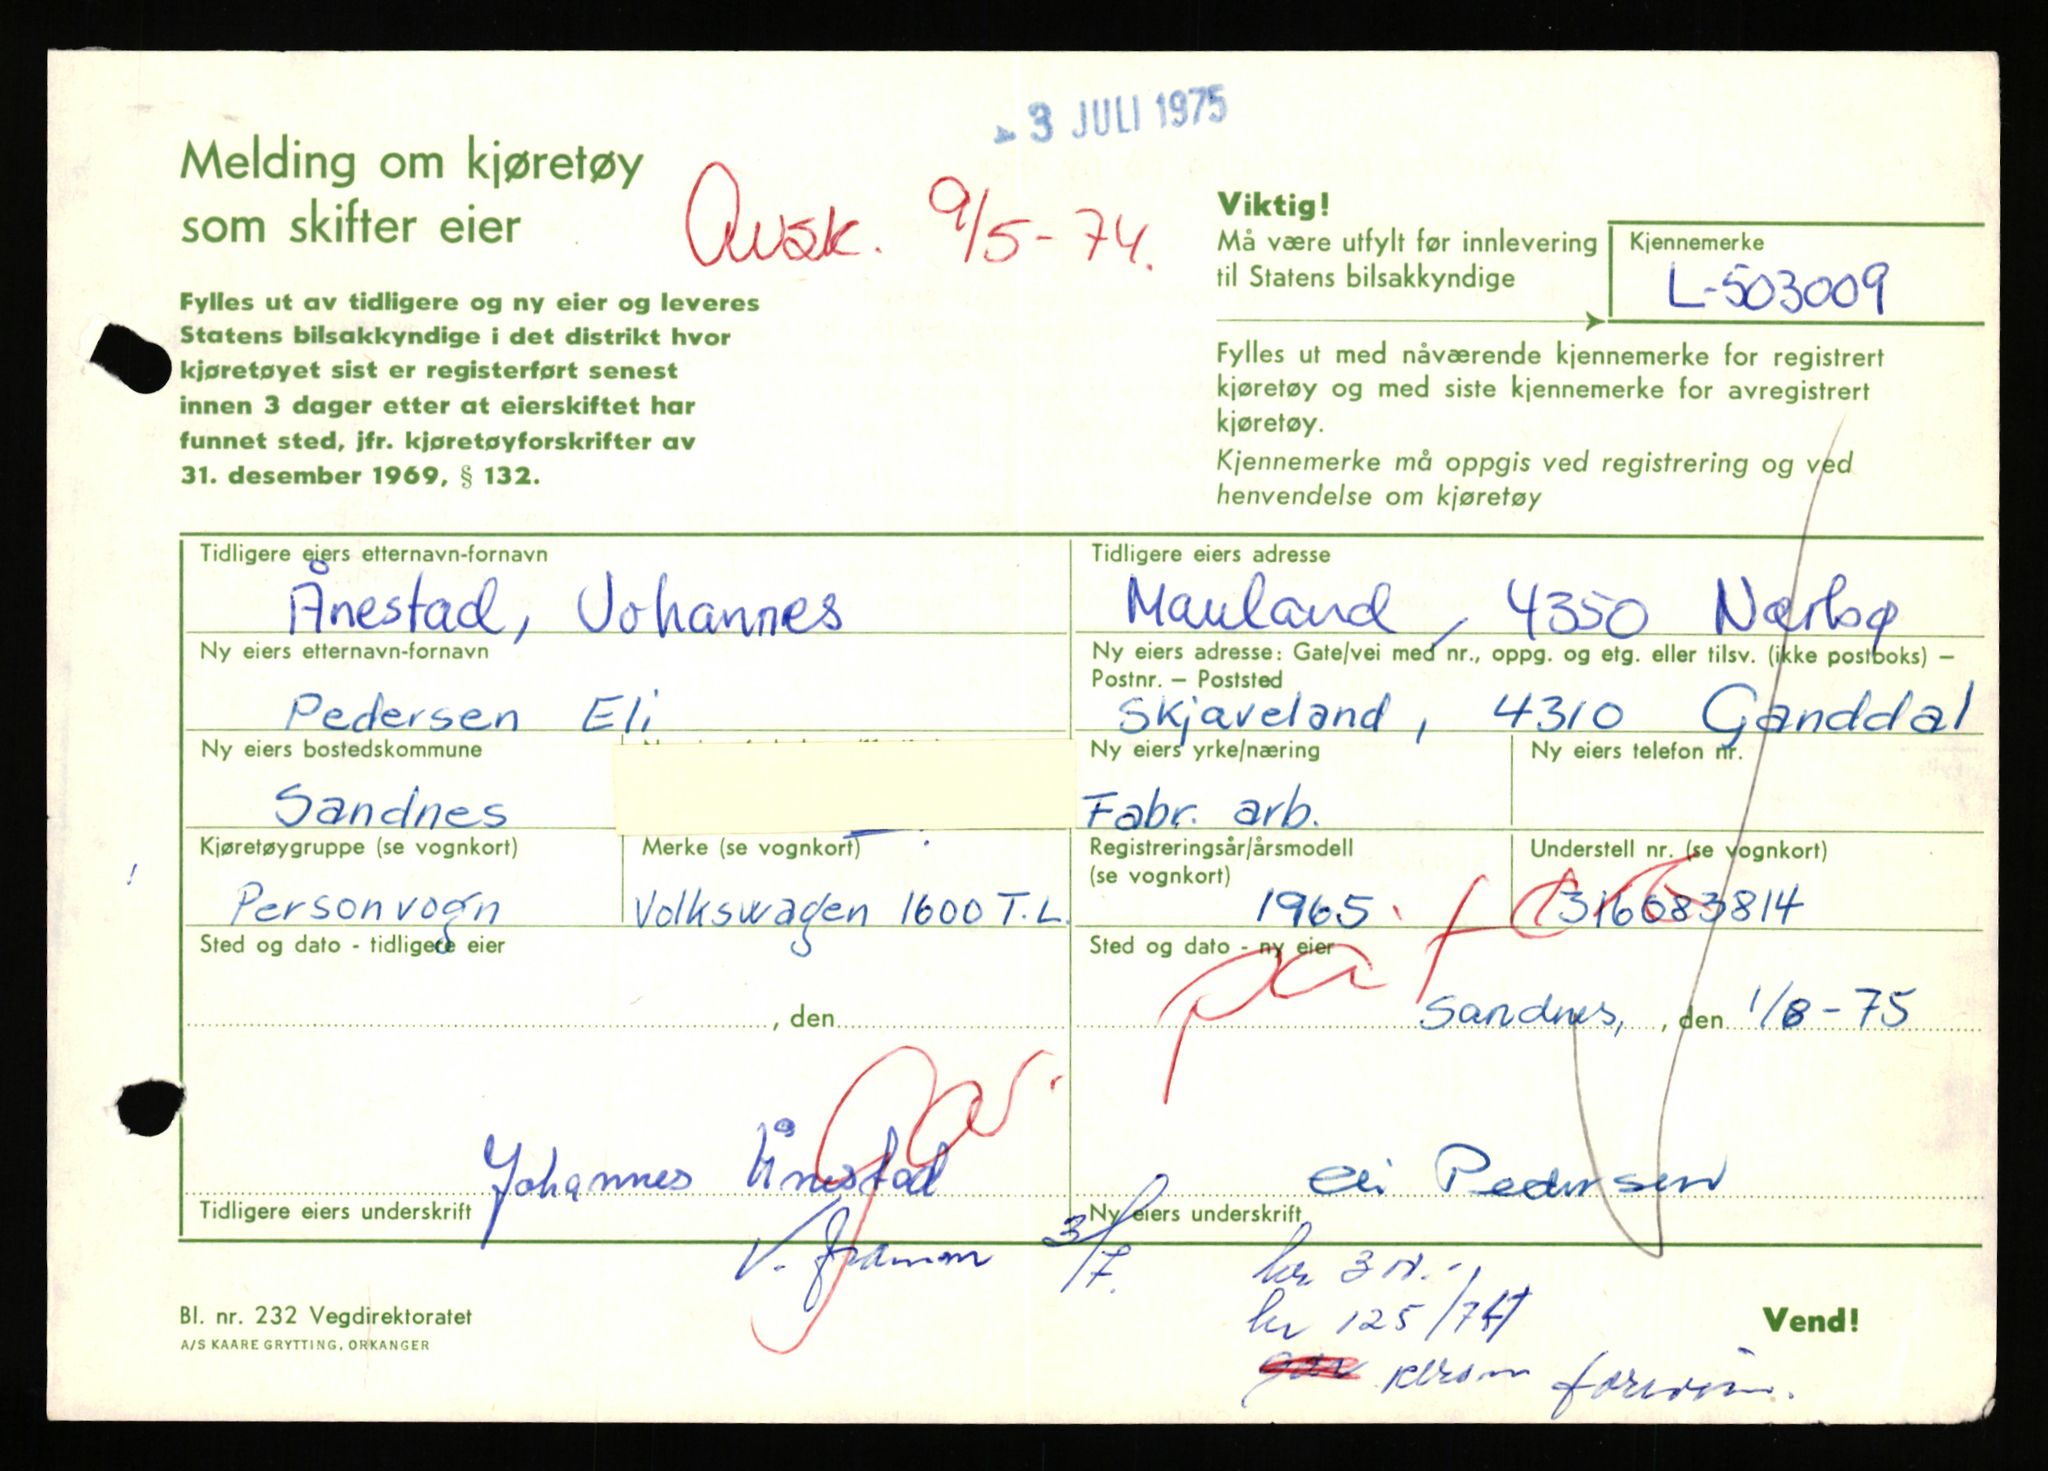 - 3 JULI 1975
Melding om kjøretøy
som skifter eier
Avsk. 9/5-74.
Viktig!
Må være utfylt før innlevering
til Statens bilsakkyndige
Kjennemerke
L-503009
Fylles ut av tidligere og ny eier og leveres
Statens bilsakkyndige i det distrikt hvor
kjøretøyet sist er registerført senest
innen 3 dager etter at eierskiftet har
funnet sted, jfr. kjøretøyforskrifter av
31. desember 1969, § 132.
Fylles ut med nåværende kjennemerke for registrert
kjøretøy og med siste kjennemerke for avregistrert
kjøretøy.
Kjennemerke må oppgis ved registrering og ved
henvendelse om kjøretøy
Tidligere eiers etternavn-fornavn
Ånestad, Johannes
Tidligere eiers adresse
Mauland, 4350 Nærbø
Ny eiers etternavn-fornavn
Pedersen Eli
Ny eiers adresse: Gate/vei med nr., oppg. og etg. eller tilsv. (ikke postboks) –
Postnr. – Poststed
Skjæveland, 4310 Ganddal
Ny eiers bostedskommune
Sandnes
Ny eiers yrke/næring
Fabr. arb.
Ny eiers telefon nr.
Kjøretøygruppe (se vognkort)
Personvogn
Merke (se vognkort)
Volkswagen 1600 T.L.
Registreringsår/årsmodell
(se vognkort)
1965
Understell nr. (se vognkort)
316083814
Sted og dato - tidligere eier
, den
Sted og dato - ny eier
Sandnes, , den 1/6-75
Johannes Ånestad
Tidligere eiers underskrift
Eli Pedersen
Ny eiers underskrift
V. 3/7.
kr 125/74
Bl. nr. 232 Vegdirektoratet
A/S KAARE GRYTTING, ORKANGER
Vend!